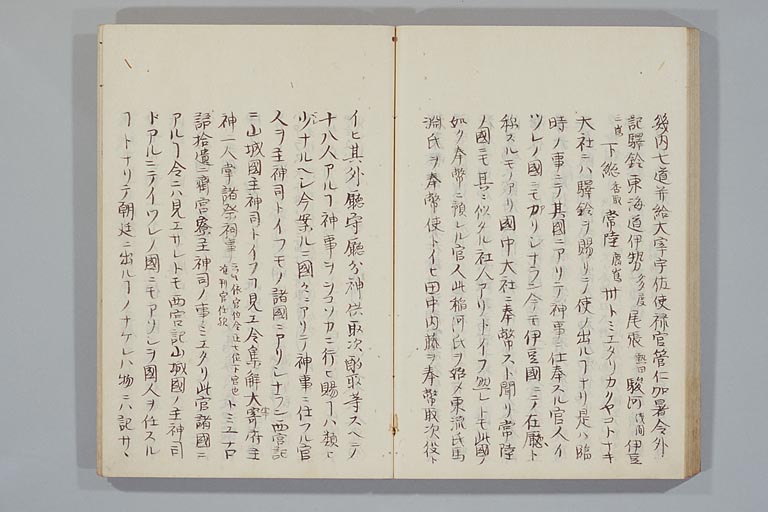 幾内七道并給大宰宇佐使禄官管仁加署令外
記驛鈴東海道伊勢多度尾張熱田駿河浅間伊豆
三島下総香取常陸鹿島卅トミエタリカクヤコトナキ
大社ニハ驛鈴ヲ賜リテ使ノ出ルフナリ是ハ臨
時ノ事ニテ其國ニアリテ神事ニ仕奉スル官人イ
ツレノ國ニモアリシナラン今モ伊豆國ニテノ在廳ト
称スルモノアリ國中大社ニ奉幣スト聞リ常陸
ノ國ニモ其ニ似タル社人アリトイフ然レトモ此國ノ
如ク奉幣ニ預レル官人此稲河氏ヲ始メ東流氏馬
淵氏ヲ奉幣使トイヒ田中内藤ヲ奉幣取次役ト
イヒ其外廳守廳分神供取次酌取等スヘテノ
十八人アルフ神事ヲシコソカニ行ヒ賜フハ類ヒ
少ナルヘシ今業ルニ國々ニアリテ神事ニ仕フル官
人ヲ主神司トイフモノ諸國ニアリシナラン西宮記
ニ山城國主神司トイフフ見エ令集解大宰府主
神一人掌諸祭祠事トミエ古
語拾遺ニ齋宮寮主神司ノ事ミエタリ此官諸國ニ
アルフ令ニハ見エサレトモ西宮記山城國ノ主神司
トアルニテイツレノ國ニモアリシヲ國人ヲ仕スル
フトナリテ朝廷ニ出ルフノナケレハ物ニハ記サヽ